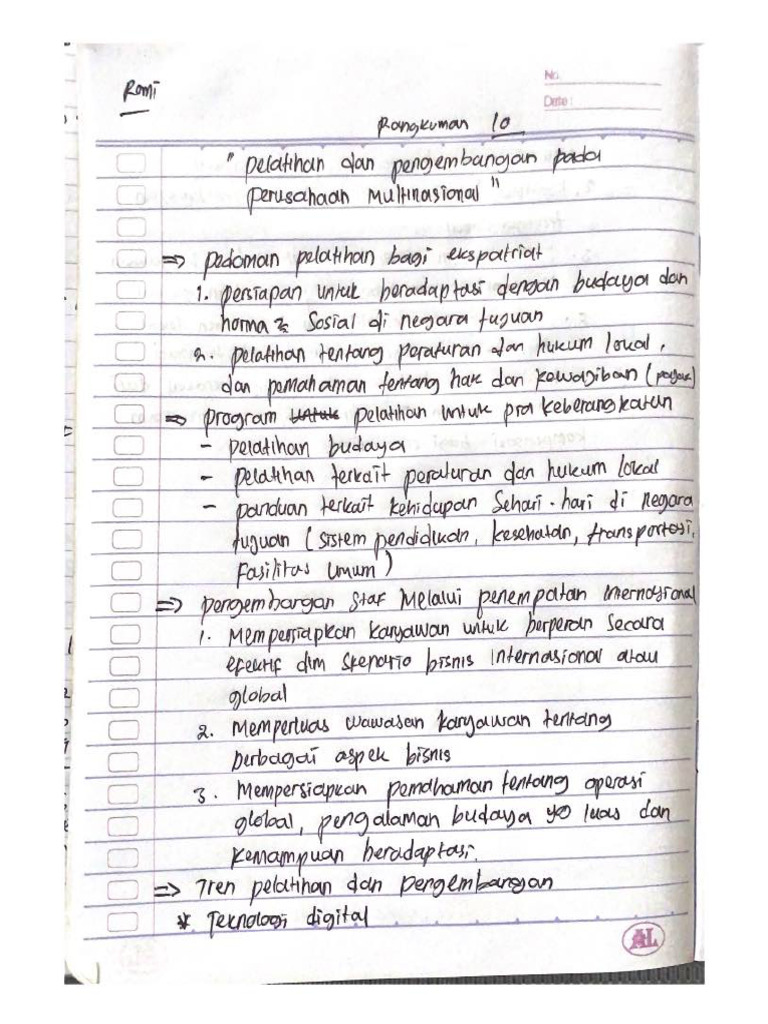 Romi
No.
Date:
Rangkuman 10
" pelatihan dan pengembangan pada
perusahaan Multinasional "
⇒ pedoman pelatihan bagi ekspatriat
1. persiapan untuk beradaptasi dengan budaya dan
norma2 sosial di negara tujuan
2. pelatihan tentang peraturan dan hukum lokal,
dan pemahaman tentang hak dan kewajiban (pajak)
⇒ program untuk pelatihan untuk pra keberangkatan
- pelatihan budaya
- pelatihan terkait peraturan dan hukum lokal
- panduan terkait kehidupan sehari-hari di negara
tujuan (sistem pendidikan, kesehatan, transportasi,
Fasilitas umum)
⇒ pengembangan staf Melalui penempatan Internasional
1. Mempersiapkan karyawan untuk berperan secara
efektif dlm skenario bisnis internasional atau
global
2. Memperluas wawasan karyawan tentang
berbagai aspek bisnis
3. Mempersiapkan pemahaman tentang operasi
global, pengalaman budaya yg luas dan
kemampuan beradaptasi.
⇒ Tren pelatihan dan pengembangan
* Teknologi digital
AL